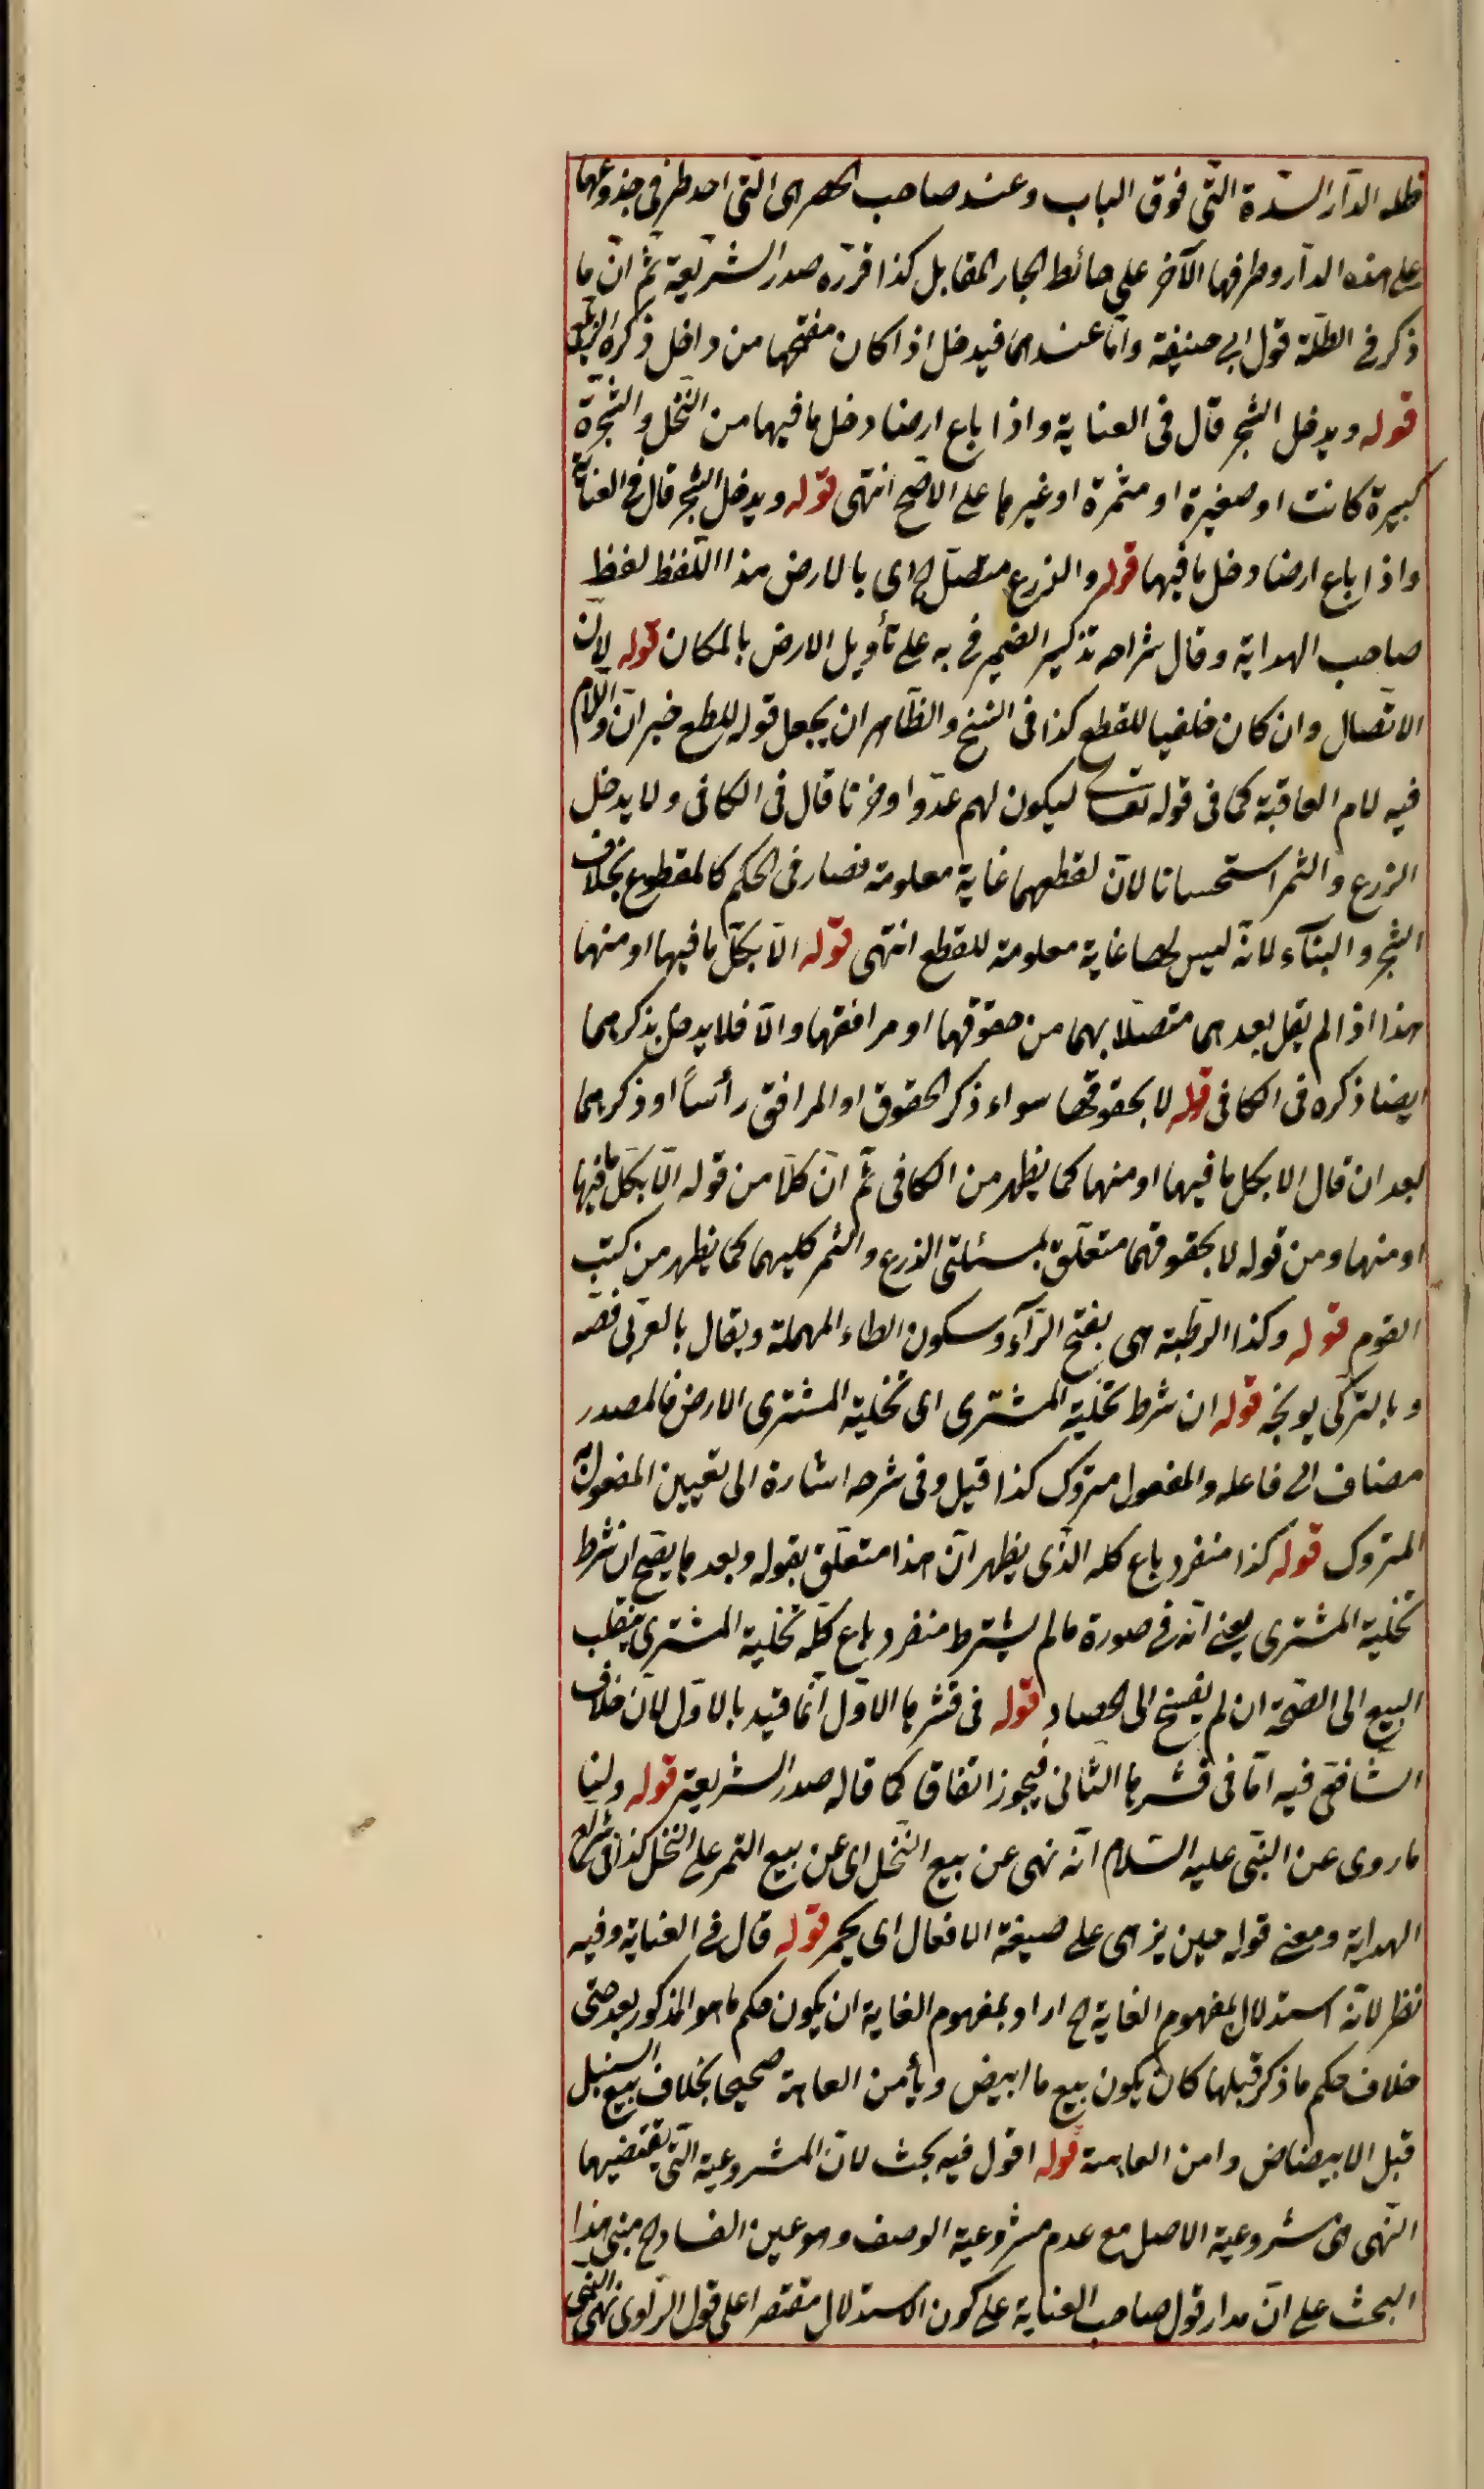 ظله الدار السدة التى فوق الباب وعند صاحب الحصر هى التى احد طرفى جذوعها
على هذه الدار وطرفها الآخر على حائط الجار المقابل كذا قرره صدر الشريعة ثم ان ما
ذكر فى الظلة قول ابى حنيفة واما عندهما فيدخل اذا كان مفتحها من داخل ذكره الزيلعى
قوله ويدخل الشجر قال فى العناية واذا باع ارضا دخل ما فيها من النخل والشجرة
كبيرة كانت او صغيرة او مثمرة او غيرها على الاصح انتهى قوله ويدخل الشجر قال فى العناية
واذا باع ارضا دخل ما فيها قوله والزرع متصل اه اى بالارض هذا اللفظ لفظ
صاحب الهداية وقال شراحه تذكير الضمير فى به على تأويل الارض بالمكان قوله لان
الاتصال وان كان خلفيا للقطع كذا فى النسخ والظاهر ان يجعل قوله للقطع خبر ان واللام
فيه لام العاقبة كما فى قوله تعالى ليكون لهم عدوا وحزنا قال فى الكافى ولا يدخل
الزرع والثمر استحسانا لان لقطعهما غاية معلومة فصار فى الحكم كالمقطوع بخلاف
الشجر والبناء لانه ليس لهما غاية معلومة للقطع انتهى قوله الا بكل ما فيها او منها
هذا اذا لم يقل بعدهما متصلا بهما من حقوقها او مرافقها والا فلا يدخل بذكرهما
ايضا ذكره فى الكافى قوله لا بحقوقها سواء ذكر الحقوق او المرافق رأسا او ذكرهما
بعد ان قال الا بكل ما فيها او منها كما يظهر من الكافى ثم ان كلا من قوله الا بكل ما فيها
او منها ومن قوله لا بحقوقهما متعلق بمسئلتى الزرع والثمر كليهما كما يظهر من كتب
القوم قوله وكذا الرطبة هى بفتح الراء وسكون الطاء المهملة ويقال بالعربى فصه
وبالتركى يونجه قوله ان شرط تخلية المشترى اى تخلية المشترى الارض فالمصدر
مضاف الى فاعله والمفعول متروك كذا قيل وفى شرحه اشارة الى تعيين المفعول به
المتروك قوله كذا منفرد باع كله الذى يظهر ان هذا متعلق بقوله وبعدها يصح ان شرط
تخلية المشترى يعنى انه فى صورة ما لم يشترط منفرد باع كله تخلية المشترى ينقلب
البيع الى الصحة ان لم يفسخ الى الحصاد قوله فى قشرها الاول انما قيد بالاول لان خلاف
الشافعى فيه اما فى قشرها الثانى فيجوز اتفاقا كما قاله صدر الشريعة قوله ولنا
ما روى عن النبى عليه السلام انه نهى عن بيع النخل اى عن بيع الثمر على النخل كذا فى شرح
الهداية ومعنى قوله حين يزهى على صيغة الافعال اى يحمر قوله قال فى العناية وفيه
نظر لانه استدلال بمفهوم الغاية اه اراد بمفهوم الغاية ان يكون حكم ما هو المذكور بعد حتى
خلاف حكم ما ذكر قبلها كان يكون بيع ما ابيض ويأمن العاهة صحيحا بخلاف بيع السنبل
قبل الابيضاض وامن العاهة قوله اقول فيه بحث لان المشروعية التى يقتضيها
النهى هى مشروعية الاصل مع عدم مشروعية الوصف وهو عين الفساد اه مبنى هذا
البحث على ان مدار قول صاحب العناية على كون الاستدلال مقتصرا على قول الراوى نهى النبى